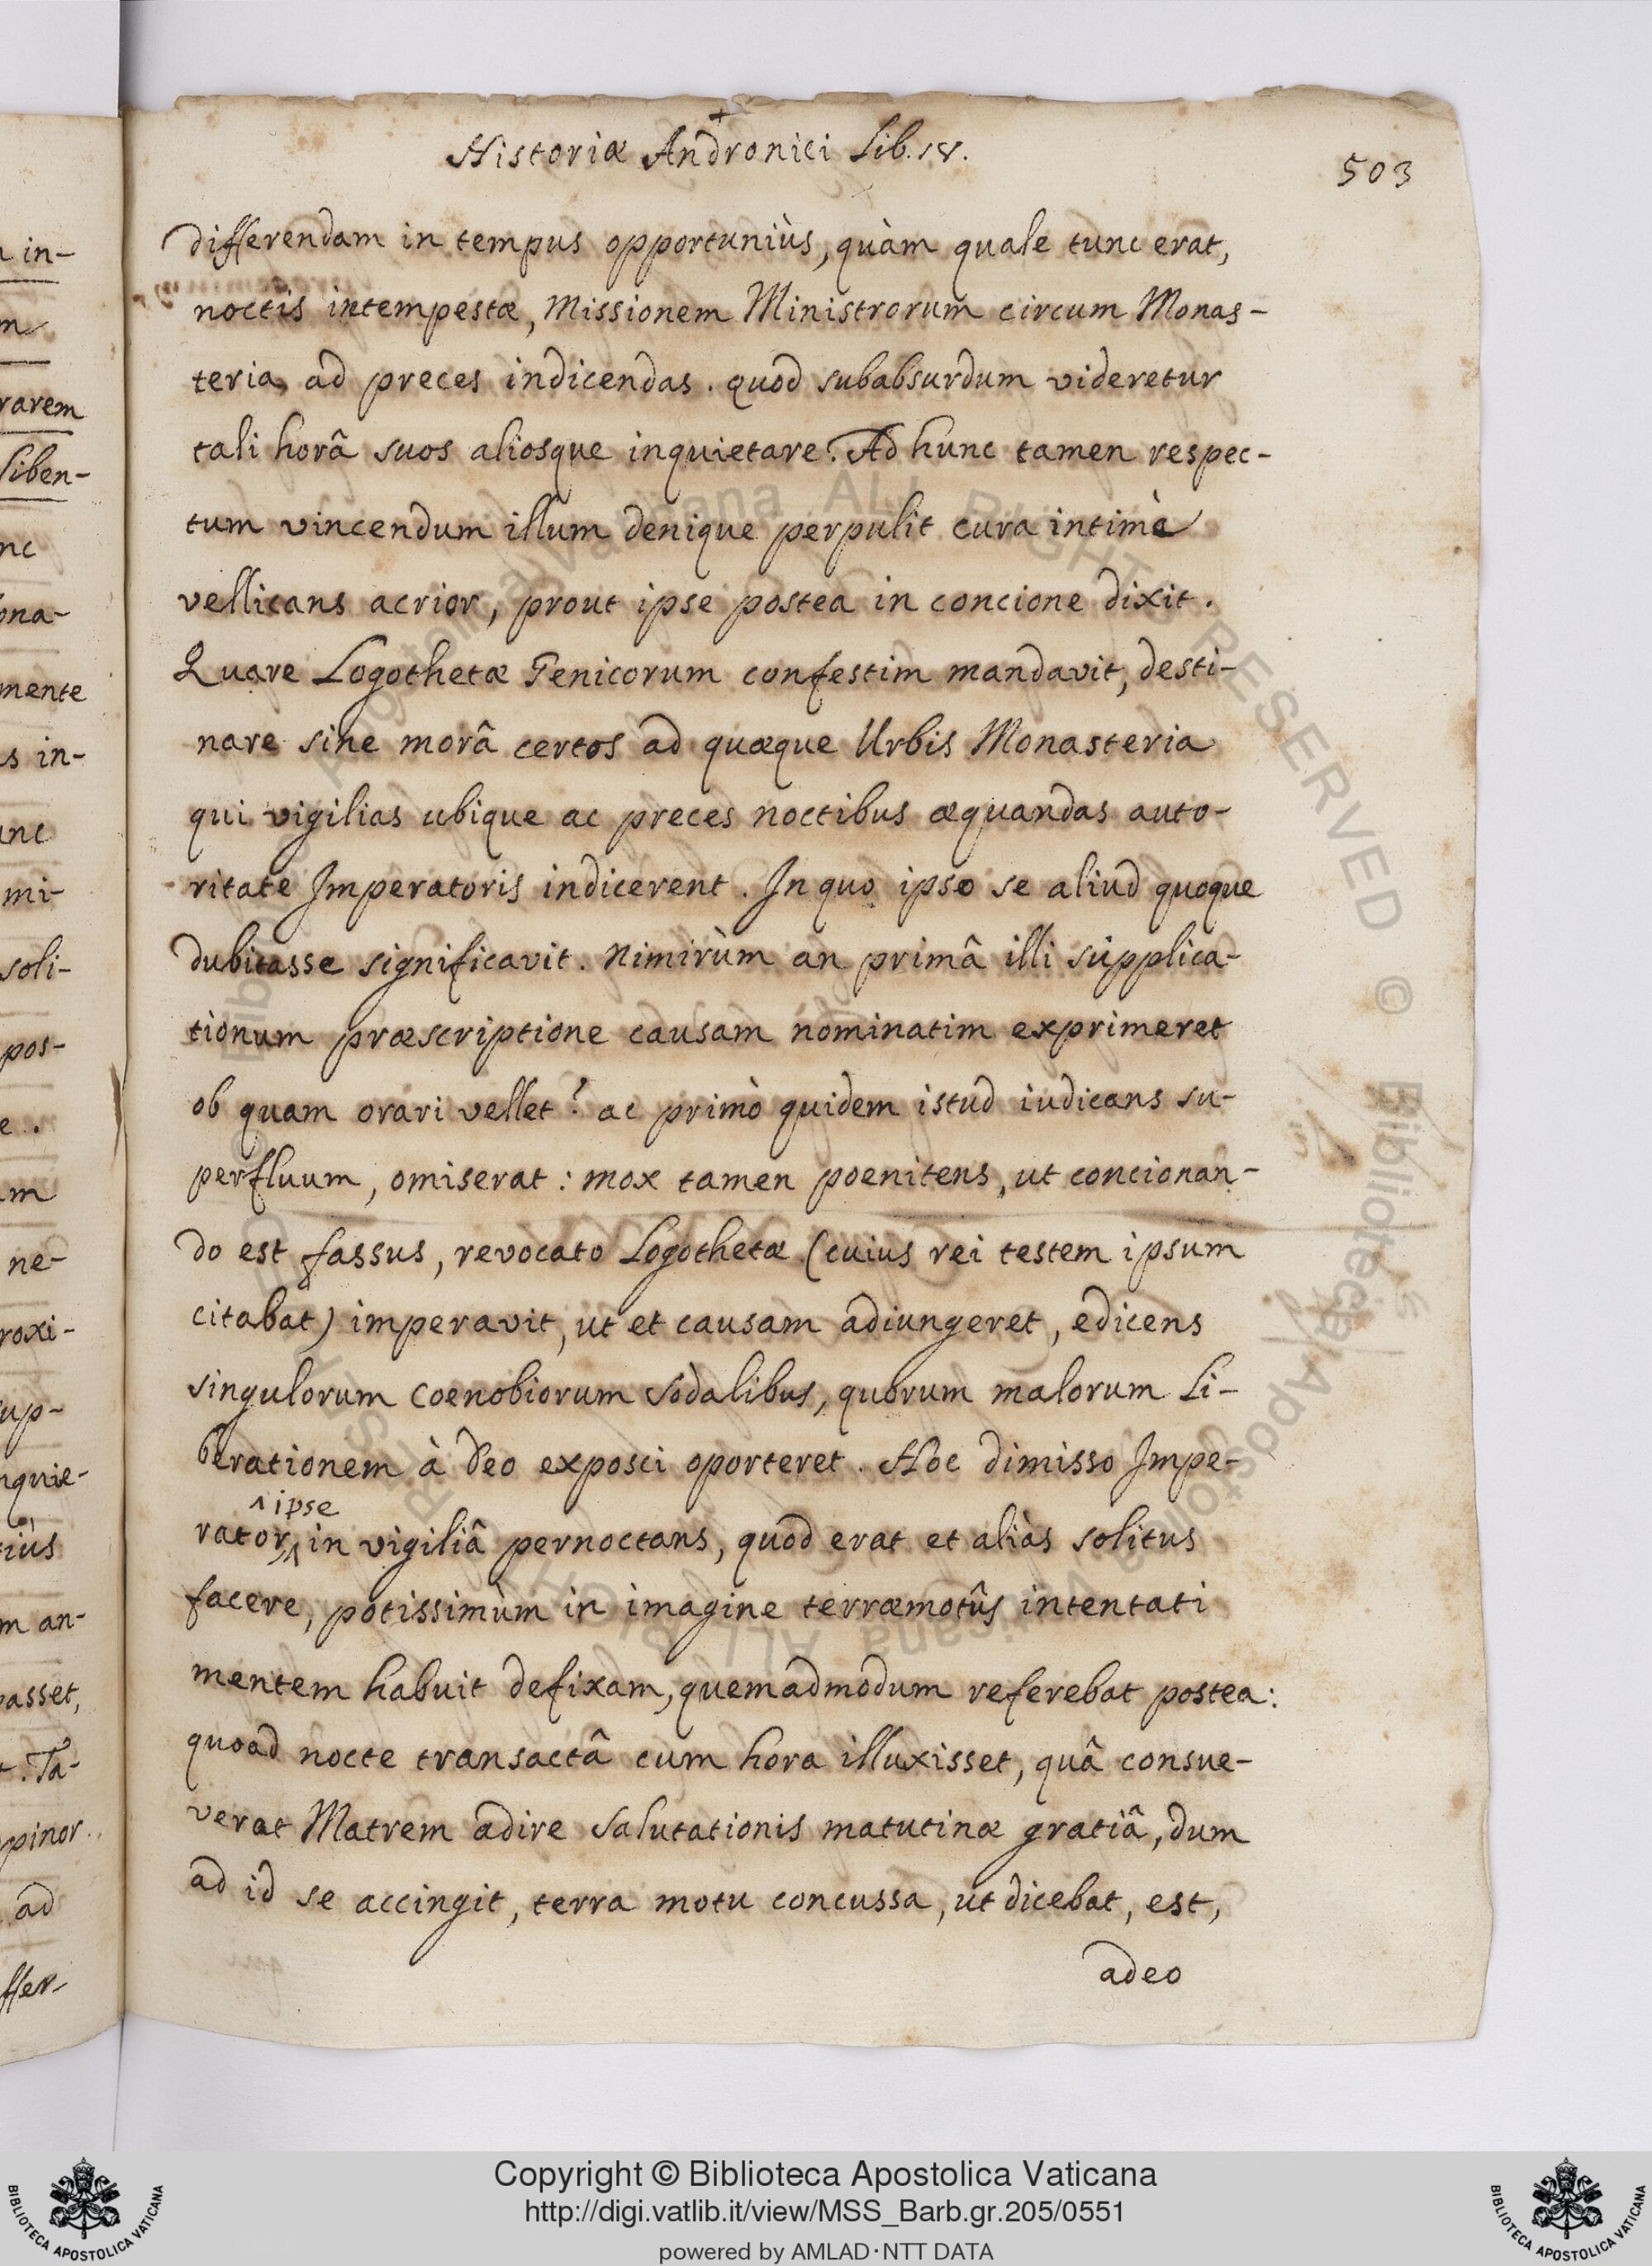 Historiæ Andronici Lib. IV.
503
differendam in tempus opportuniùs, quàm quale tunc erat,
noctis intempestæ, Missionem Ministrorum circum Monas-
teria, ad preces indicendas. quod subabsurdum videretur
tali horâ suos aliosque inquietare. Ad hunc tamen respec-
tum vincendum illum denique perpulit cura intimè
vellicans acrior, prout ipse postea in concione dixit.
Quare Logothetæ Genicorum confestim mandavit, desti-
nare sine morâ certos ad quæque Urbis Monasteria
qui vigilias ubique ac preces noctibus æquandas auto-
ritate Imperatoris indicerent. In quo ipso se aliud quoque
dubitasse significavit. Nimirùm an primâ illi supplica-
tionum præscriptione causam nominatim exprimeret
ob quam orari vellet? ac primò quidem istud iudicans su-
perfluum, omiserat: mox tamen poenitens, ut concionan-
do est fassus, revocato Logothetæ (cuius rei testem ipsum
citabat) imperavit, ut et causam adiungeret, edicens
singulorum coenobiorum sodalibus, quorum malorum Li-
berationem à Deo exposci oporteret. Hoc dimisso Impe-
ipse
rator, in vigiliâ pernoctans, quod erat et aliàs solitus
facere, potissimùm in imagine terræmotûs intentati
mentem habuit defixam, quemadmodum referebat postea:
quoad nocte transactâ cum hora illuxisset, quâ consue-
verat Matrem adire salutationis matutinæ gratiâ, dum
ad id se accingit, terra motu concussa, ut dicebat, est,
adeo
in-
m
rarem
Liben-
nc
ona-
mente
s in-
unc
mi-
soli-
pos-
e.
um
ne-
roxi-
sup-
nquie-
m an-
passet,
t. Ta-
opinor
ad
ffer-
Copyright © Biblioteca Apostolica Vaticana
http://digi.vatlib.it/view/MSS_Barb.gr.205/0551
powered by AMLAD·NTT DATA
BIBLIOTECA APOSTOLICA VATICANA
BIBLIOTECA APOSTOLICA VATICANA